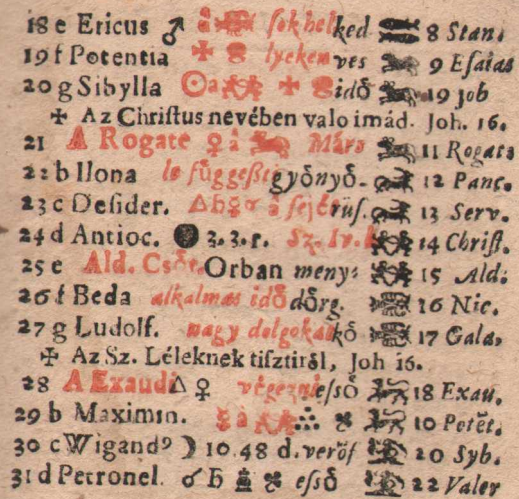 18 e Ericus ♂ sok hel ked 8 Stan.
19 f Potentia lyeken ves 9 Esaias
20 g Sibylla ☉ a idő 19 Job
✠ Az Christus nevében valo imád. Joh. 16.
21 A Rogate ♀ á Márs 11 Rogats
22 b Ilona le függeßti gyönyö- 12 Panc.
23 c Desider. △ ♄ ♀ ♂ á fejér rus. 13 Serv.
24 d Antioc. ● 3. 3. r. Sz. Iv. 14 Christ.
25 e Ald. Csőt. Orban meny: 15 Ald:
26 f Beda alkalmas idő dörg. 16 Nic.
27 g Ludolf. nagy dolgokat kö 17 Gala.
✠ Az Sz. Léleknek tisztiről, Joh 16.
28 A Exaudi △ ♀ végezni essö 18 Exau.
29 b Maximin. 10 Petèt.
30 c Wigandꝰ ☽ 10.48 d. veröf 20 Syb.
31 d Petronel. ☌ ♄ essö 22 Valer